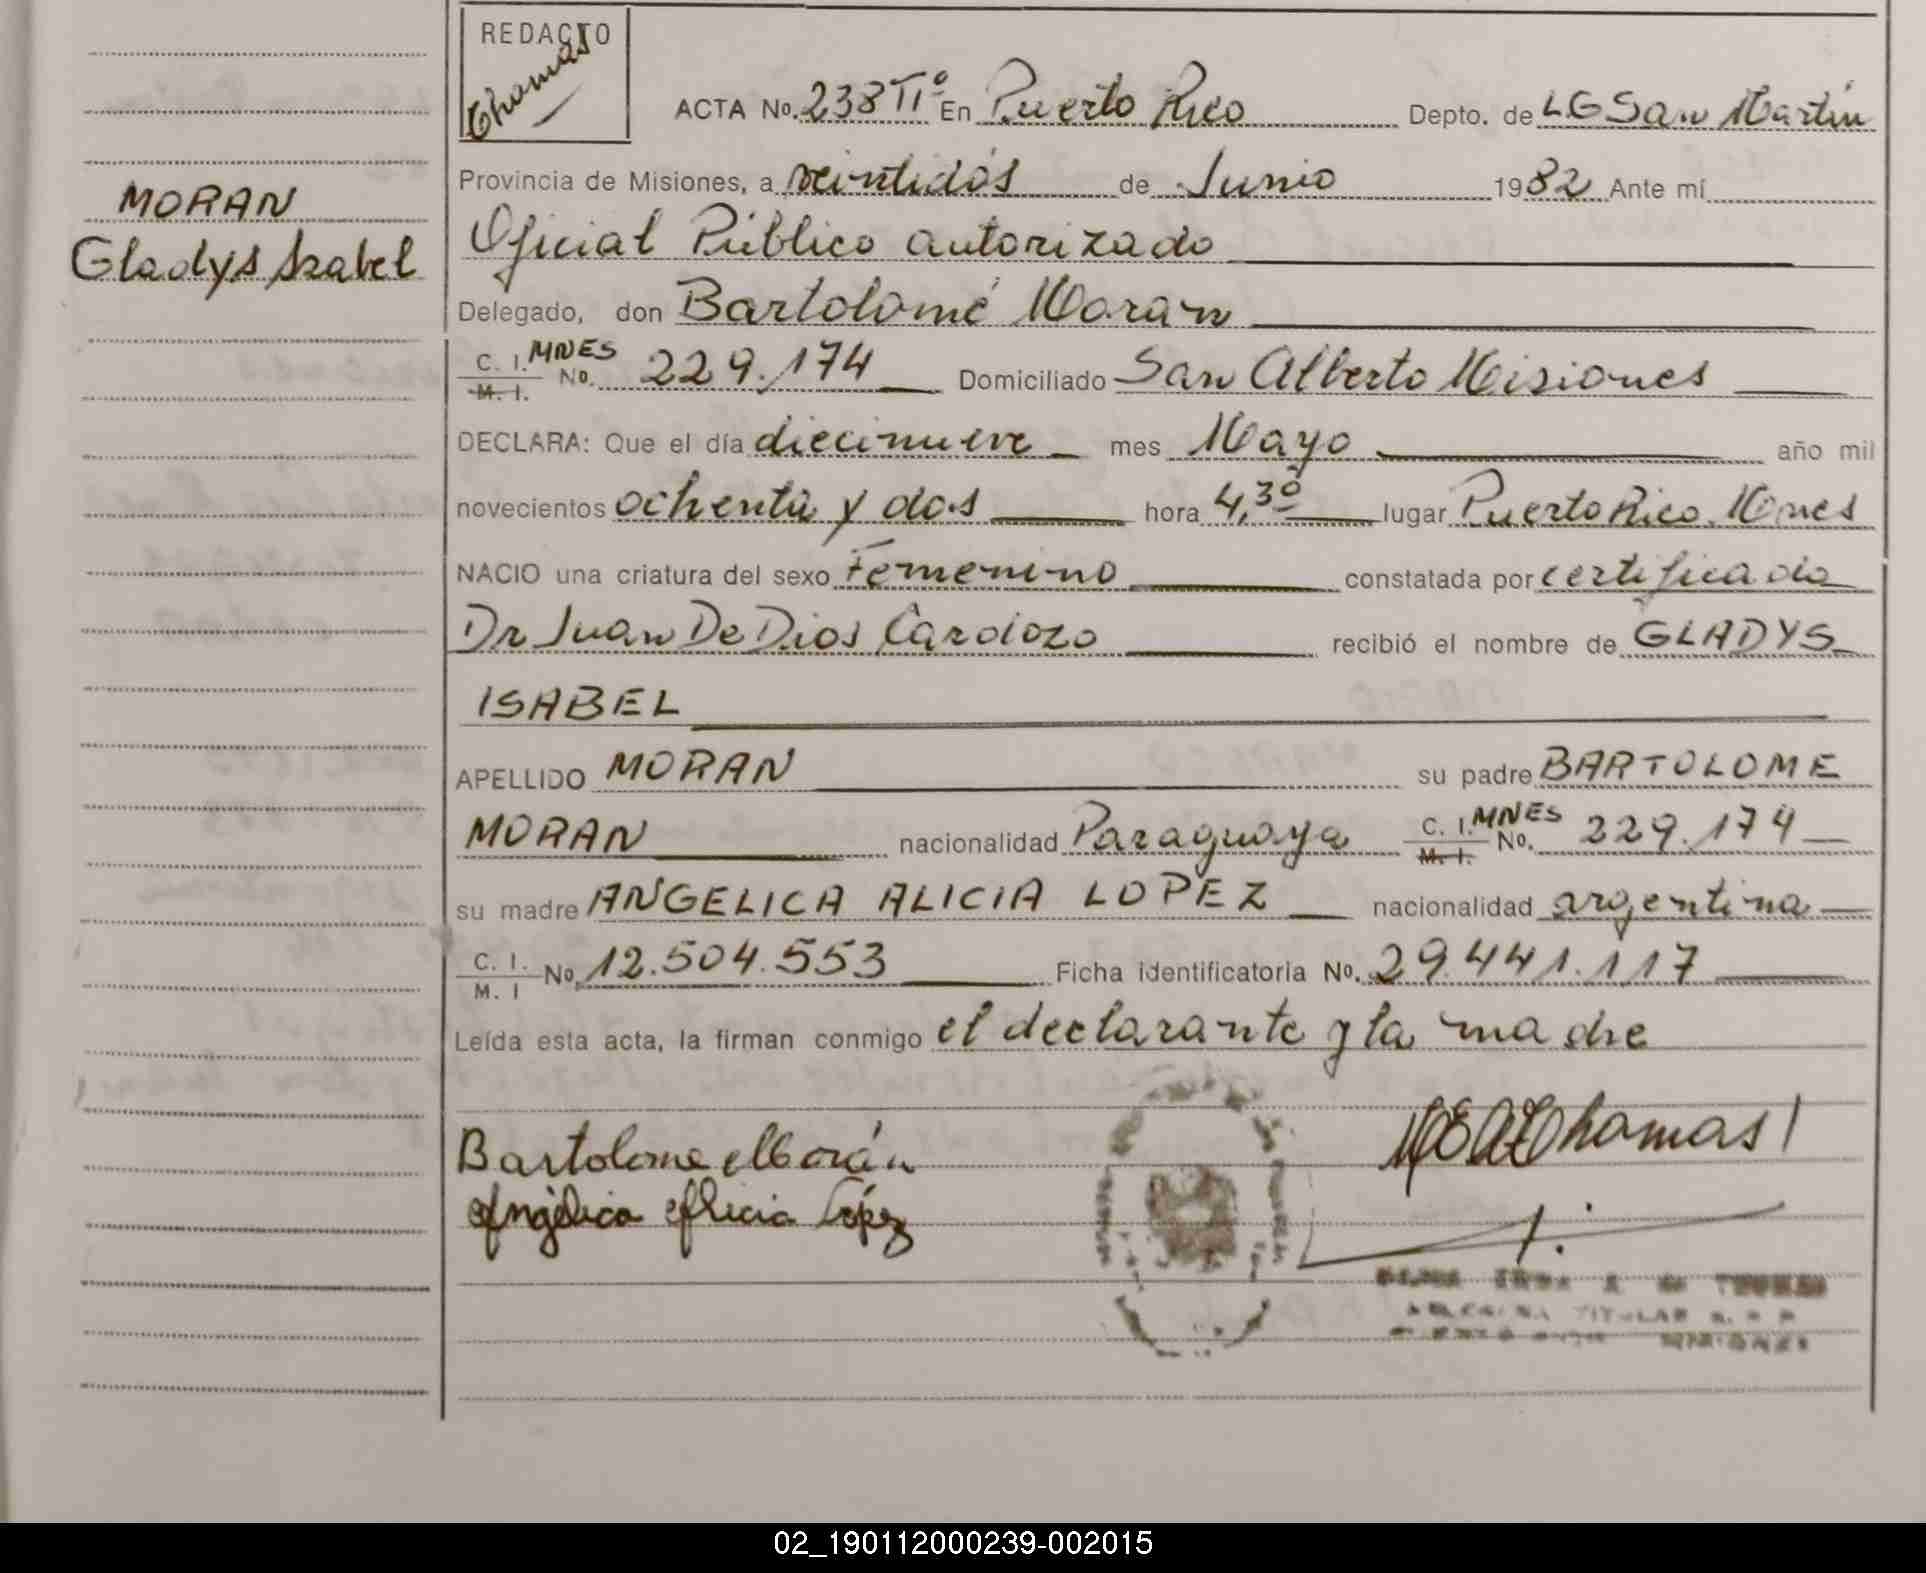 REDACTO
Thomas
ACTA No. 238 Tº En Puerto Rico Depto. de LG San Martín
Provincia de Misiones, a veintidós de Junio 1982 Ante mí
Oficial Público autorizado
MORAN
Gladys Isabel
Delegado, don Bartolomé Moran
C. I. MNES
M. I. No. 229.174 Domiciliado San Alberto Misiones
DECLARA: Que el día diecinueve mes Mayo año mil
novecientos ochenta y dos hora 4,30 lugar Puerto Rico Mones
NACIO una criatura del sexo Femenino constatada por certificado
Dr Juan De Dios Cardozo recibió el nombre de GLADYS
ISABEL
APELLIDO MORAN su padre BARTOLOME
MORAN nacionalidad Paraguaya C. I. MNES M. I. No. 229.174
su madre ANGELICA ALICIA LOPEZ nacionalidad argentina
C. I. M. I No. 12.504.553 Ficha identificatoria No. 29.441.117
Leída esta acta, la firman conmigo el declarante y la madre
Bartolome Morán
Angélica Alicia López
Thomas
TITULAR
MISIONES
02_190112000239-002015